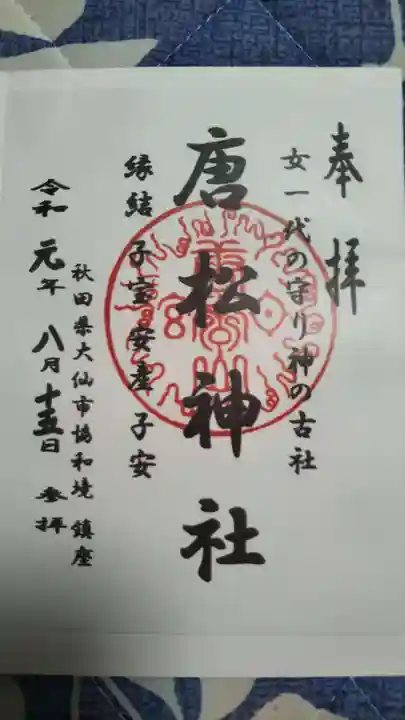 奉拝
女一代の守り神の古社
唐松神社
縁結 子宝安産 子安
秋田県大仙市協和境 鎮座
令和元年八月十五日 参拝